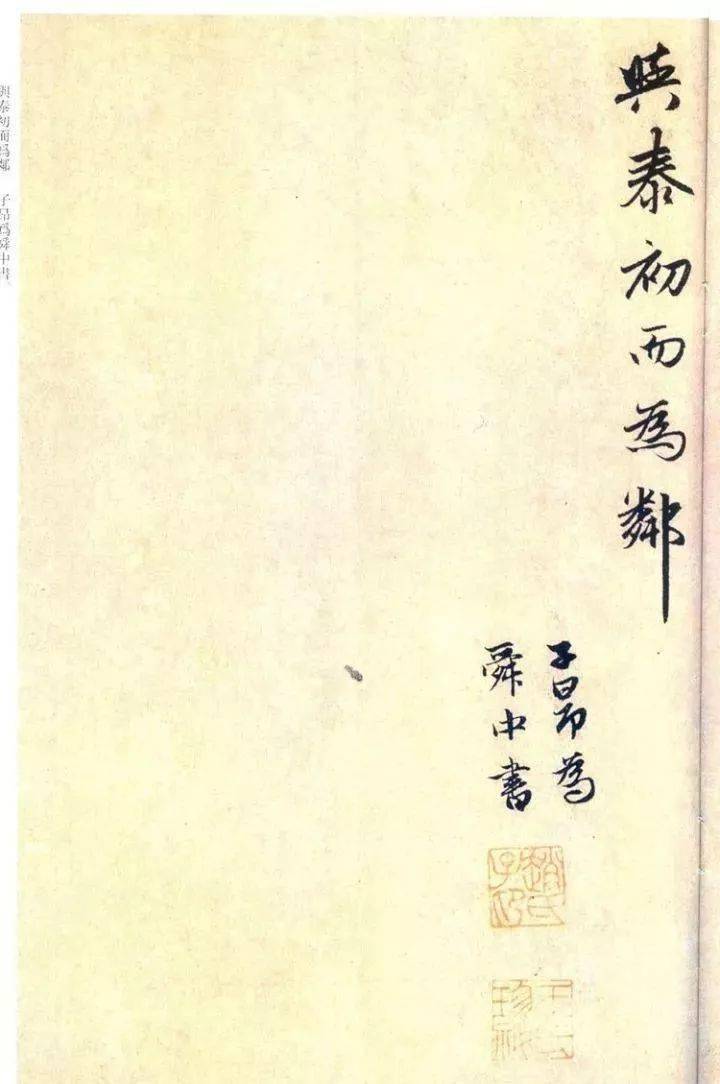 與泰初而為鄰
子昂為
舜中書
趙氏子印
與泰初而爲鄰 子昂爲舜中書。